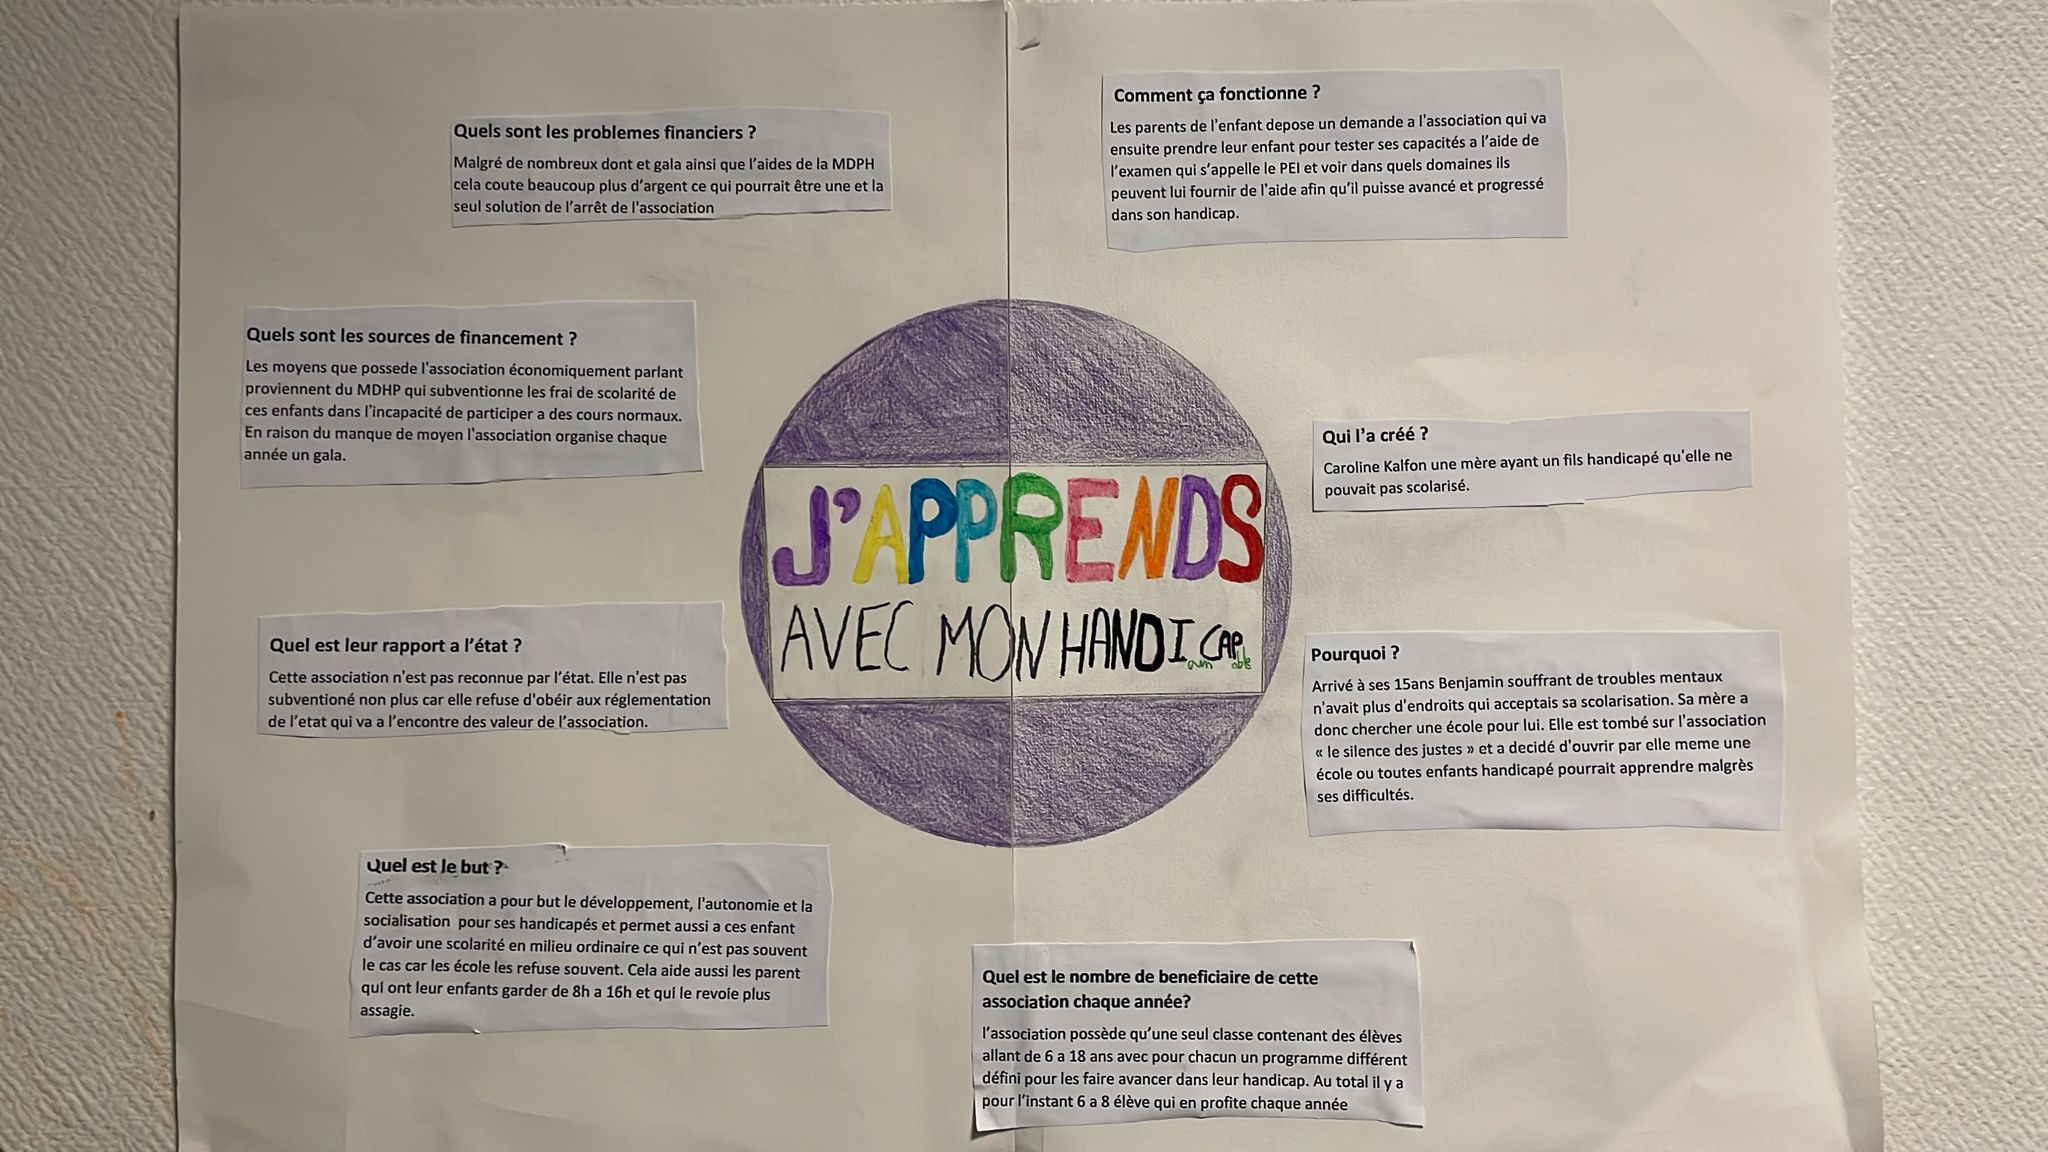 Quels sont les problemes financiers ?
Malgré de nombreux dont et gala ainsi que l’aides de la MDPH
cela coute beaucoup plus d’argent ce qui pourrait être une et la
seul solution de l’arrêt de l'association
Comment ça fonctionne ?
Les parents de l’enfant depose un demande a l'association qui va
ensuite prendre leur enfant pour tester ses capacités a l’aide de
l’examen qui s’appelle le PEI et voir dans quels domaines ils
peuvent lui fournir de l’aide afin qu’il puisse avancé et progressé
dans son handicap.
Quels sont les sources de financement ?
Les moyens que possede l’association économiquement parlant
proviennent du MDHP qui subventionne les frai de scolarité de
ces enfants dans l’incapacité de participer a des cours normaux.
En raison du manque de moyen l’association organise chaque
année un gala.
Qui l’a créé ?
Caroline Kalfon une mère ayant un fils handicapé qu’elle ne
pouvait pas scolarisé.
J'APPRENDS
AVEC MON HANDICAP
am able
Quel est leur rapport a l’état ?
Cette association n’est pas reconnue par l’état. Elle n’est pas
subventioné non plus car elle refuse d'obéir aux réglementation
de l’etat qui va a l’encontre des valeur de l’association.
Pourquoi ?
Arrivé à ses 15ans Benjamin souffrant de troubles mentaux
n’avait plus d’endroits qui acceptais sa scolarisation. Sa mère a
donc chercher une école pour lui. Elle est tombé sur l’association
« le silence des justes » et a decidé d'ouvrir par elle meme une
école ou toutes enfants handicapé pourrait apprendre malgrès
ses difficultés.
Quel est le but ?
Cette association a pour but le développement, l'autonomie et la
socialisation pour ses handicapés et permet aussi a ces enfant
d’avoir une scolarité en milieu ordinaire ce qui n’est pas souvent
le cas car les école les refuse souvent. Cela aide aussi les parent
qui ont leur enfants garder de 8h a 16h et qui le revoie plus
assagie.
Quel est le nombre de beneficiaire de cette
association chaque année?
l’association possède qu’une seul classe contenant des élèves
allant de 6 a 18 ans avec pour chacun un programme différent
défini pour les faire avancer dans leur handicap. Au total il y a
pour l’instant 6 a 8 élève qui en profite chaque année